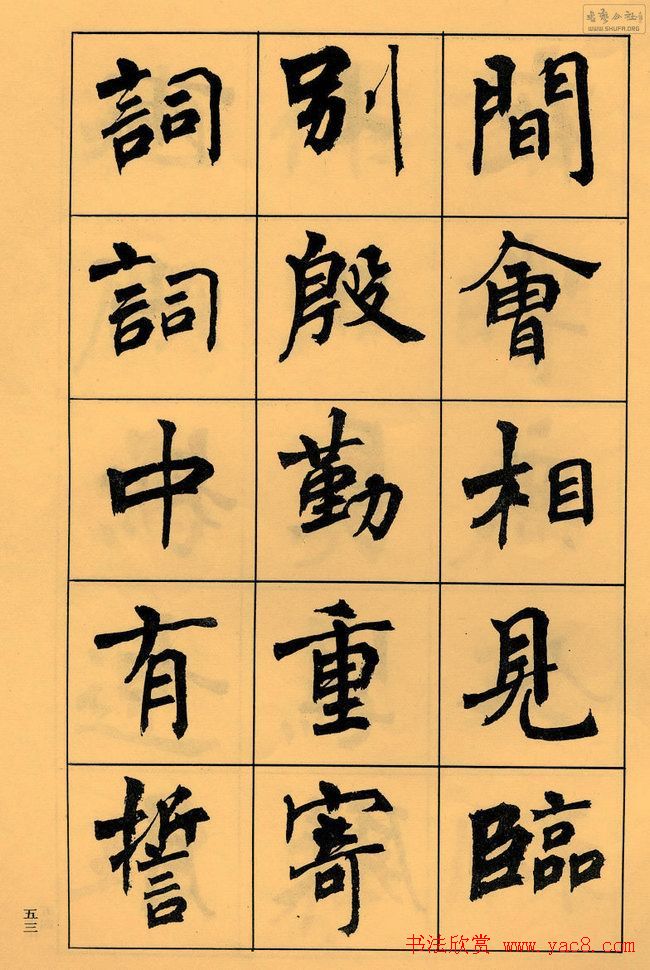 間會相見臨
別殷勤重寄
詞詞中有誓
五三
書藝公社
WWW.SHUFA.ORG
书法欣赏 www.yac8.com